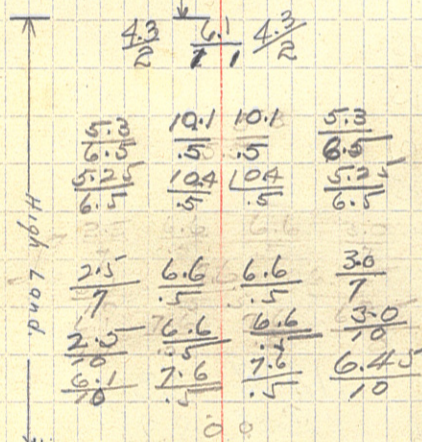 4.3/2 6.1/1 1 4.3/2
5.3/6.5 10.1/.5 10.1/.5 5.3/6.5
5.25/6.5 10.4/.5 10.4/.5 5.25/6.5
2.5/7 6.6/.5 6.6/.5 3.0/7
2.5/10 6.6/.5 6.6/.5 3.0/10
6.1/10 7.6/.5 7.6/.5 6.45/10
High Land